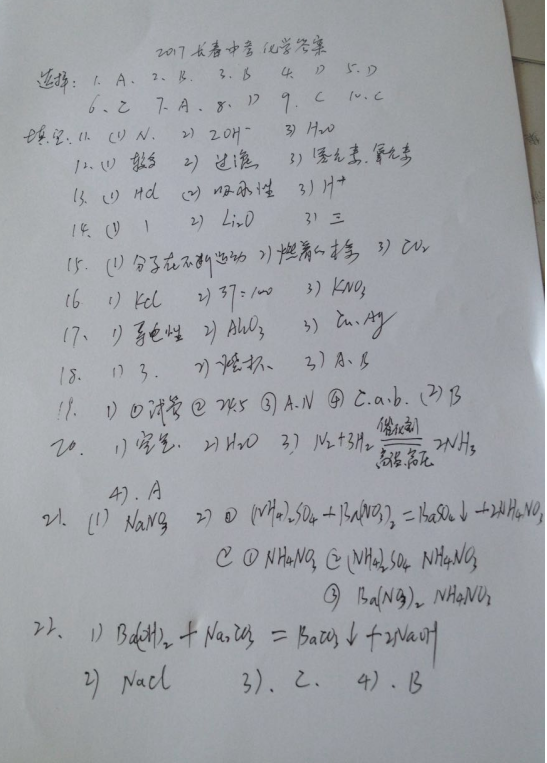 2017长春中考化学答案
选择: 1. A. 2. B. 3. B 4. D 5. D
6. C 7. A. 8. D 9. C 10. C
填空. 11. (1) N. 2) 2OH⁻ 3) H₂O
12. (1) 2) 过滤 3) 氢元素.氧元素
13. (1) HCl (2) 吸水性 3) H⁺
14. (1) 1 2) Li₂O 3) 三
15. (1) 分子在不断运动 2) 燃着的木条 3) CO₂
16. 1) KCl 2) 37:100 3) KNO₃
17. 1) 导电性 2) Al₂O₃ 3) Cu.Ag
18. 1) 3. 2) 烧杯. 3) A.B
19. 1) ①试管 ② 24.5 ③ A.N ④ C.a.b. (2) B
20. 1) 空气. 2) H₂O 3) N₂+3H₂ 催化剂 高温.高压 2NH₃
4). A
21. (1) NaNO₃ 2) ① (NH₄)₂SO₄+Ba(NO₃)₂=BaSO₄↓+2NH₄NO₃
② ① NH₄NO₃ ② (NH₄)₂SO₄ NH₄NO₃
③ Ba(NO₃)₂ NH₄NO₃
22. 1) Ba(OH)₂+Na₂CO₃=BaCO₃↓+2NaOH
2) NaCl 3). C. 4). B